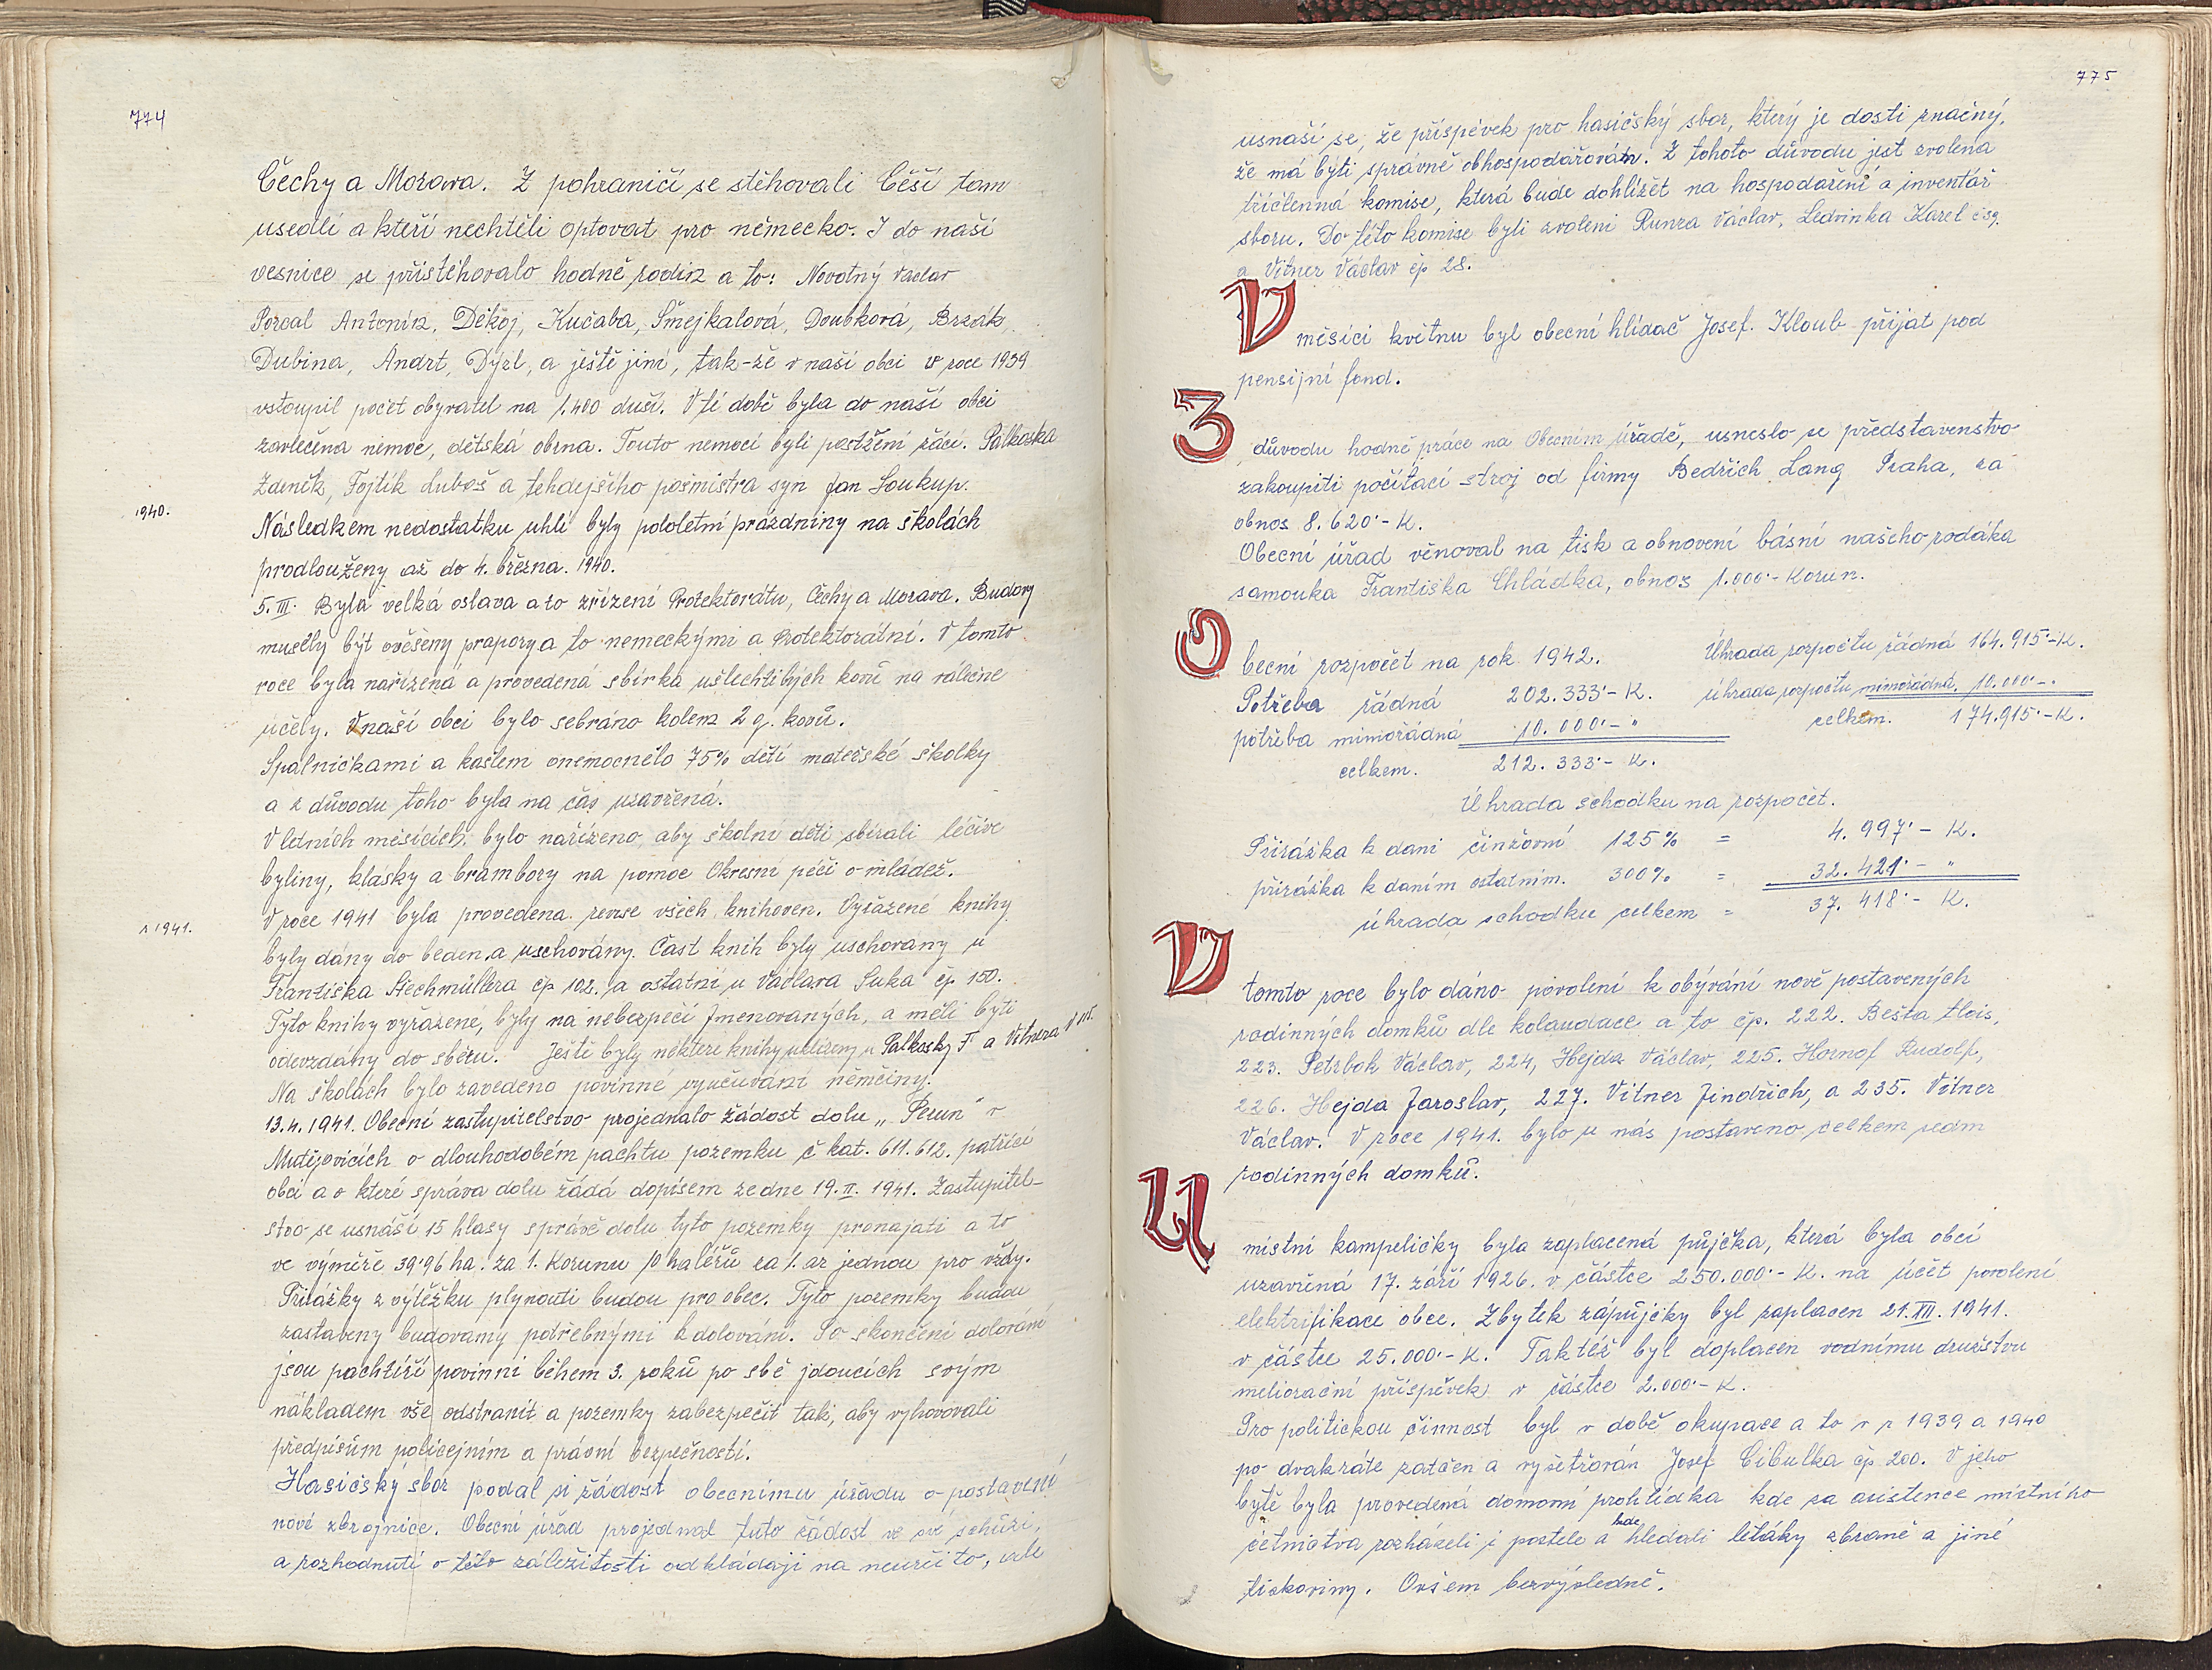 774
Čechy a Morava. Z pohraničí se stěhovali Češi tam
usedlí a kteří nechtěli optovat pro německo. I do naší
vesnice se přistěhovalo hodně rodin a to: Novotný Václav
Porcal Antonín, Děkoj, Kučaba, Šmejkalová, Doubková, Brzák
Dubina, Andrt, Dýzl, a ještě jiní, tak-že v naší obci v roce 1939
vstoupil počet obyvatel na 1.400 duší. V té době byla do naší obci
zavlečena nemoc, dětská obrna. Touto nemocí byli postiženi žáci. Palkoska
Zdeněk, Fojtík Luboš a tehdejšího pošmistra syn Jan Soukup.
1940.
Následkem nedostatku uhlí byly pololetní prázdniny na školách
prodlouženy až do 4. března. 1940.
5. III. Byla velká oslava a to zřízení Protektorátu, Čechy a Morava. Budovy
musely být ověšeny prapory a to nemeckými a Protektorátní. V tomto
roce byla nařízená a provedená sbírka ušlechtilých kovů na válečné
účely. V naší obci bylo sebráno kolem 2 q. kovů.
Spalničkami a kašlem onemocnělo 75% dětí mateřské školky
a z důvodu toho byla na čas uzavřená.
V letních měsících, bylo nařízeno, aby školní děti sbírali léčivé
byliny, klásky a brambory na pomoc Okresní péči o mládež.
r 1941.
V roce 1941 byla provedena revise všech knihoven. Vyřazené knihy
byly dány do beden, a uschovány. Část knih byly uschovany u
Františka Štechmüllera čp 102. a ostatní u Václava Suka čp 150.
Tyto knihy vyřazene, byly na nebezpečí jmenovaných, a měli býti
odevzdány do sběru. Ještě byly některé knihy uloženy u Palkosky F a Vitnera
Na školách bylo zavedeno povinné vyučování němčiny.
13.4.1941. Obecní zastupitelstvo projednalo žádost dolu „Perun" v
Mutějovicích o dlouhodobém pachtu pozemku č kat. 611. 612. patřící
obci a o které správa dolu žádá dopisem ze dne 19. II. 1941. Zastupitel-
stvo se usnáší 15 hlasy správě dolu tyto pozemky pronajati a to
ve výměře 39·96 ha. za 1. Korunu 10 haléřů za 1. ar jednou pro vždy.
Přirážky z výtěžku plynouti budou pro obec. Tyto pozemky budou
zastaveny budovamy potřebnými k dolování. Po skončení dolování
jsou pachtíři povinni během 3. roků po sbě jdoucích svým
nákladem vše odstranit a pozemky zabezpečit tak, aby vyhovovali
předpisům policejním a právní bezpečností.
Hasičský sbor podal si žádost obecnímu úřadu o postavení
nové zbrojnice. Obecní úřad projednal tuto žádost ve své schůzi,
a rozhodnutí o této záležitosti odkládají na neurčito, ale
775
usnaší se, že příspěvek pro hasičský sbor, který je dosti značný,
že má býti správně obhospodařován. Z tohoto důvodu jest zvolena
tříčlenná komise, která bude dohlížet na hospodaření a inventář
sboru. Do této komise byli zvoleni Runza Václav, Ledvinka Karel č 59.
a Vitner Václav čp 28.
V měsíci květnu byl obecní hlídač Josef. Kloub přijat pod
pensijní fond.
Z důvodu hodně práce na Obecním úřadě, usneslo se představenstvo
zakoupiti počítací stroj od firmy Bedřich Lang Praha, za
obnos 8.620·- K.
Obecní úřad věnoval na tisk a obnovení básní našeho rodáka
samouka Františka Chládka, obnos 1.000·- Korun.
Obecní rozpočet na rok 1942. Úhrada rozpočtu řádná 164.915·-K.
Potřeba řádná 202.333·- K. úhrada rozpočtu mimořádná. 10.000·-.
potřeba mimořádná 10.000·- " celkem. 174.915·-K.
celkem. 212.333·- K.
Úhrada schodku na rozpočet.
Přirážka k dani činžovní 125% = 4.997·- K.
přirážka k daním ostatním. 300% = 32.421·- "
úhrada schodku celkem = 37.418·- K.
V tomto roce bylo dáno povolení k obývání nově postavených
rodinných domků dle kolaudace a to čp. 222. Bešta Alois,
223. Petrbok Václav, 224, Hejda Václav, 225. Hornof Rudolf,
226. Hejda Jaroslav, 227. Vitner Jindřich, a 235. Vitner
Václav. V roce 1941. bylo u nás postaveno celkem sedm
rodinných domků.
U místní kampeličky byla zaplacená půjčka, která byla obcí
uzavřená 17. září 1926. v částce 250.000·- K. na účět povolení
elektrifikace obce. Zbytek zápůjčky byl zaplacen 21. XII. 1941.
v částce 25.000·- K. Taktéž byl doplacen vodnímu družstvu
meliorační příspěvek v částce 2.000·- K.
Pro politickou činnost byl v době okupace a to v r 1939 a 1940
po dvakráte zatčen a vyšetřován Josef Cibulka čp 200. V jeho
bytě byla provedená domovní prohlídka kde za asistence místního
četnictva rozházeli i postele a kde hledali letáky zbraně a jiné
tiskoviny. Ovšem bezvýsledně.